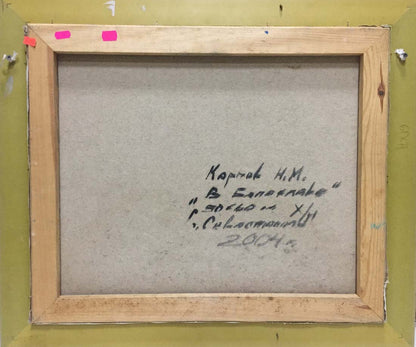 Карпов Н.И.
"В Балаклаве"
50х60 см Х/м
г. Севастополь
2004г.